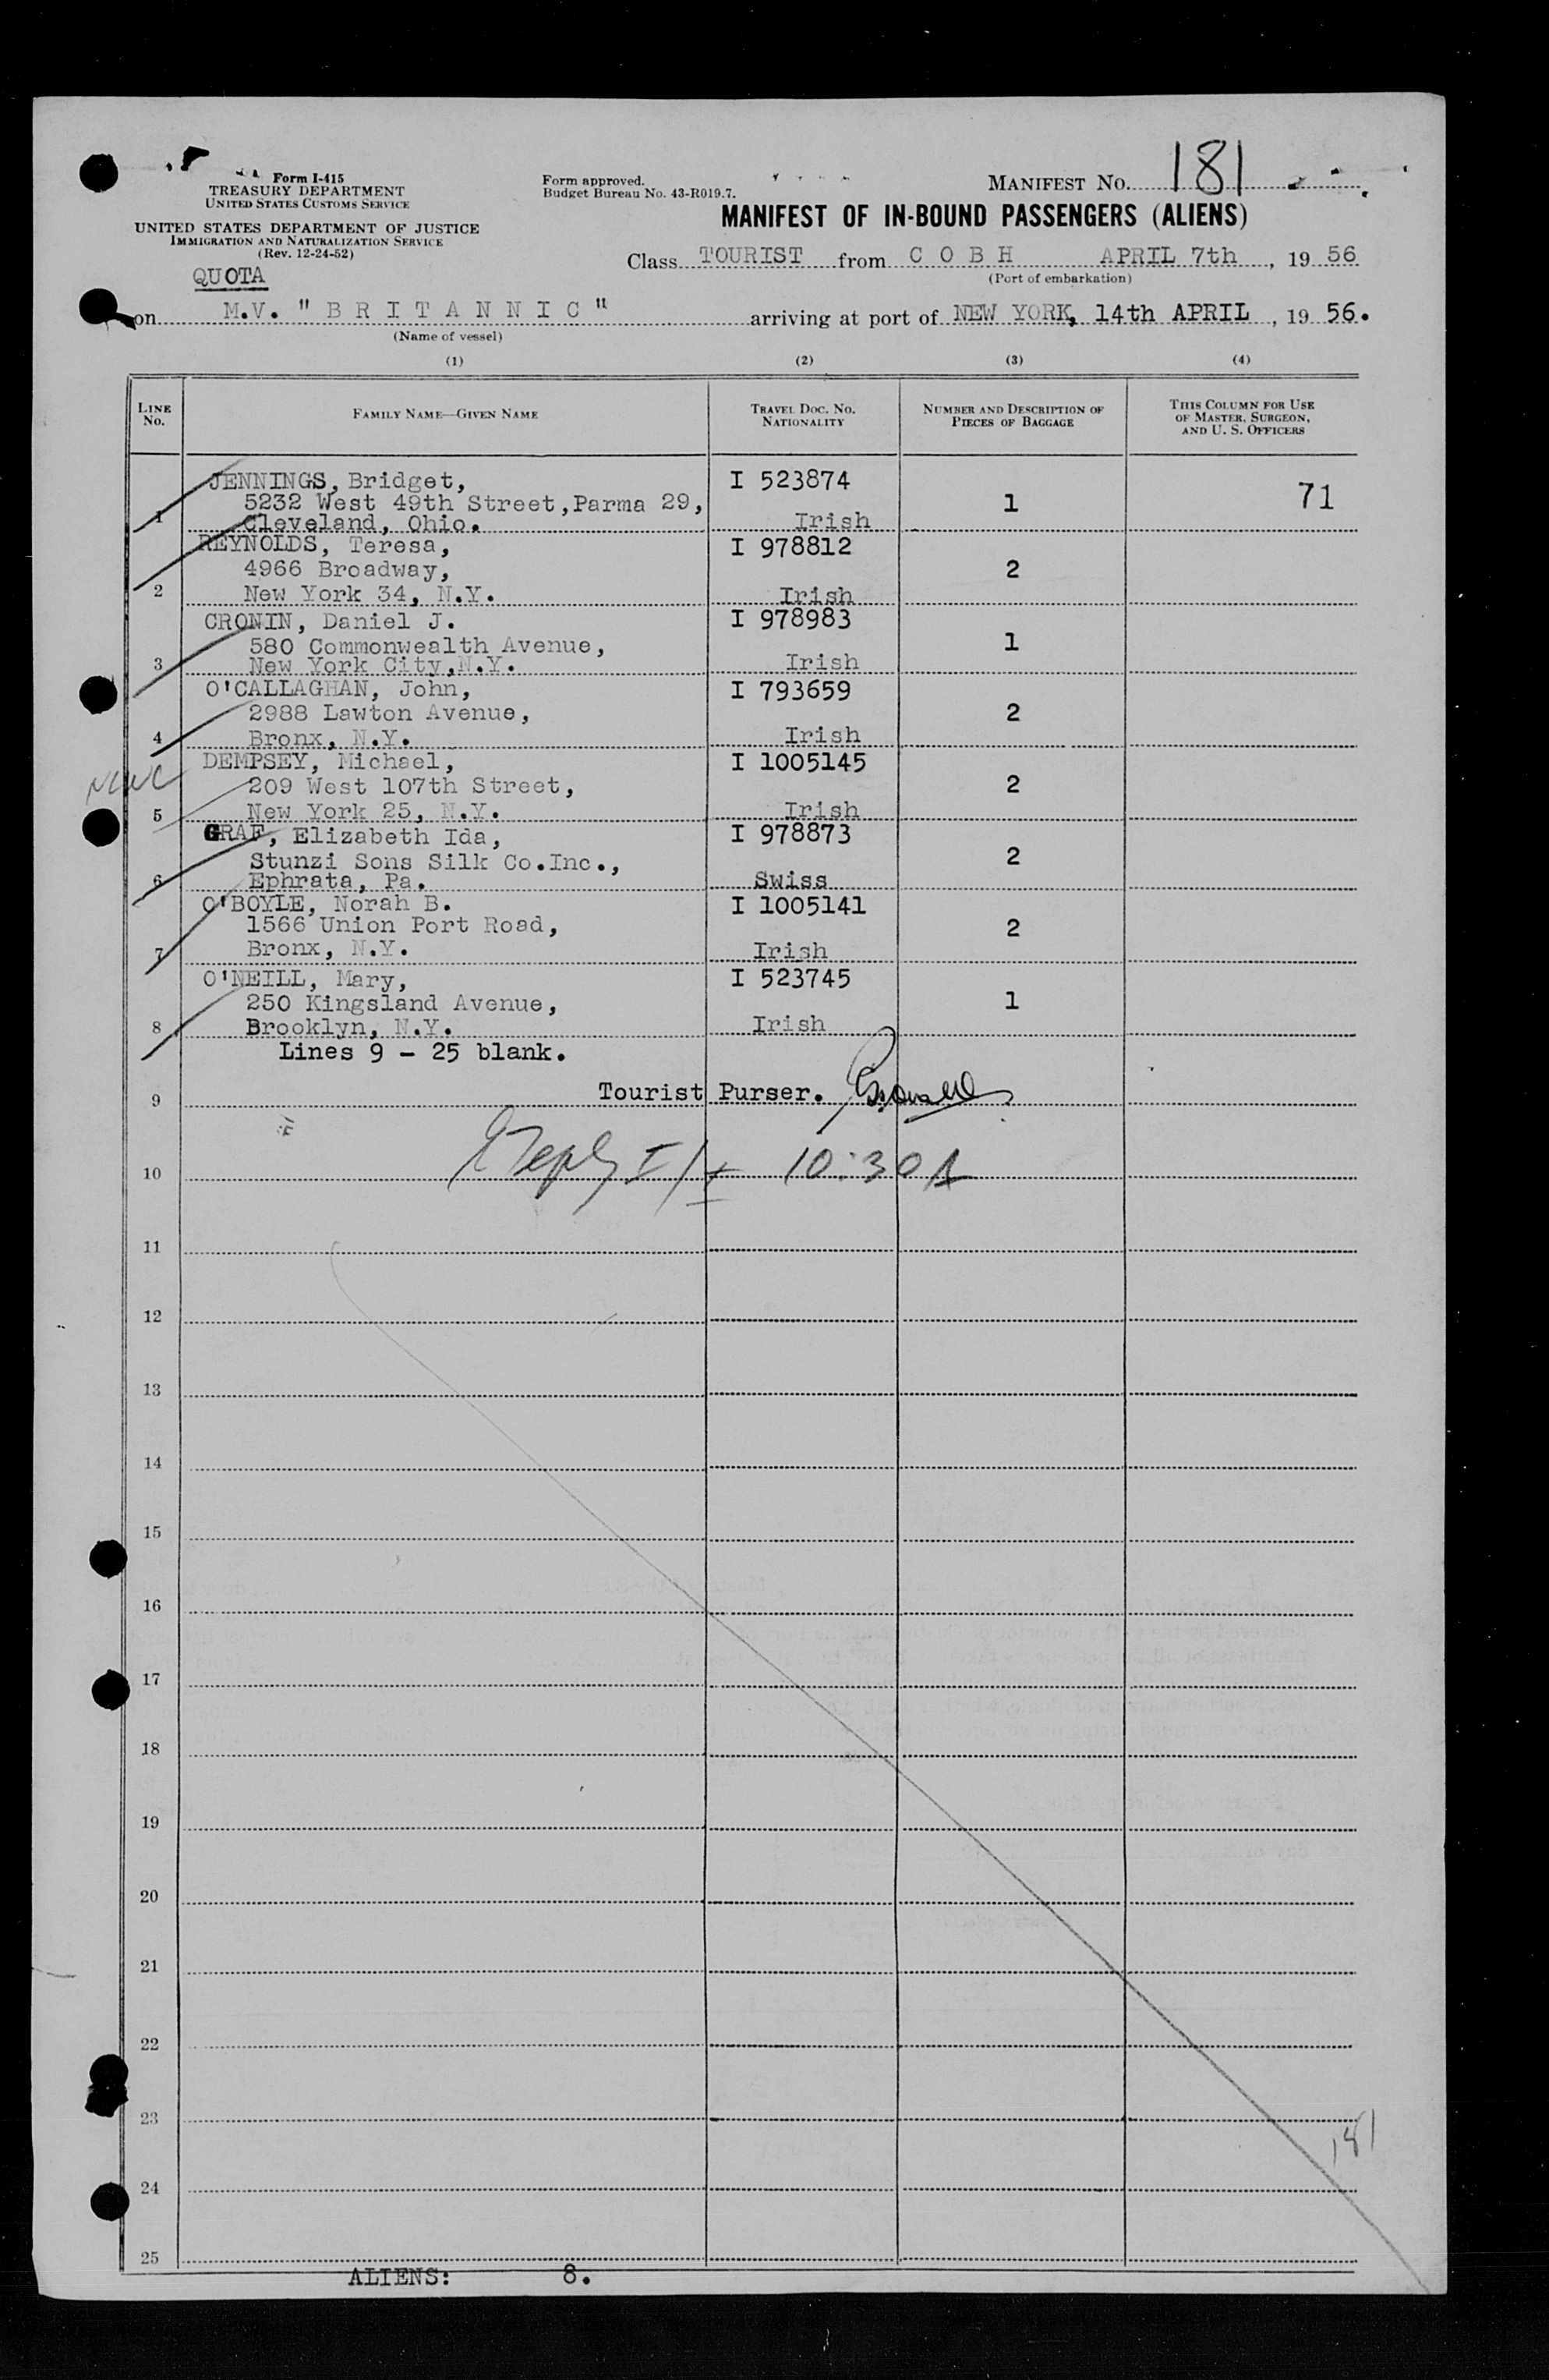 Form I-415
TREASURY DEPARTMENT
UNITED STATES CUSTOMS SERVICE
UNITED STATES DEPARTMENT OF JUSTICE
IMMIGRATION AND NATURALIZATION SERVICE
(Rev. 12-24-52)
Form approved.
Budget Bureau No. 43-R019.7.
MANIFEST NO. 181
MANIFEST OF IN-BOUND PASSENGERS (ALIENS)
QUOTA
Class TOURIST from C O B H APRIL 7th, 19 56
(Port of embarkation)
on M.V. "B R I T A N N I C" arriving at port of NEW YORK, 14th APRIL, 19 56.
(Name of vessel)
(1) (2) (3) (4)
LINE NO. FAMILY NAME—GIVEN NAME TRAVEL DOC. NO. NATIONALITY NUMBER AND DESCRIPTION OF PIECES OF BAGGAGE THIS COLUMN FOR USE OF MASTER, SURGEON, AND U. S. OFFICERS
JENNINGS, Bridget, I 523874
5232 West 49th Street, Parma 29, 1 71
1 Cleveland, Ohio. Irish
REYNOLDS, Teresa, I 978812
4966 Broadway, 2
2 New York 34, N.Y. Irish
CRONIN, Daniel J. I 978983
580 Commonwealth Avenue, 1
3 New York City, N.Y. Irish
O'CALLAGHAN, John, I 793659
2988 Lawton Avenue, 2
4 Bronx, N.Y. Irish
DEMPSEY, Michael, I 1005145
209 West 107th Street, 2
5 New York 25, N.Y. Irish
GRAF, Elizabeth Ida, I 978873
Stunzi Sons Silk Co.Inc., 2
6 Ephrata, Pa. Swiss
O'BOYLE, Norah B. I 1005141
1566 Union Port Road, 2
7 Bronx, N.Y. Irish
O'NEILL, Mary, I 523745
250 Kingsland Avenue, 1
8 Brooklyn, N.Y. Irish
Lines 9 - 25 blank.
9 Tourist Purser.
10 10:30A
11
12
13
14
15
16
17
18
19
20
21
22
23
181
24
25
ALIENS: 8.